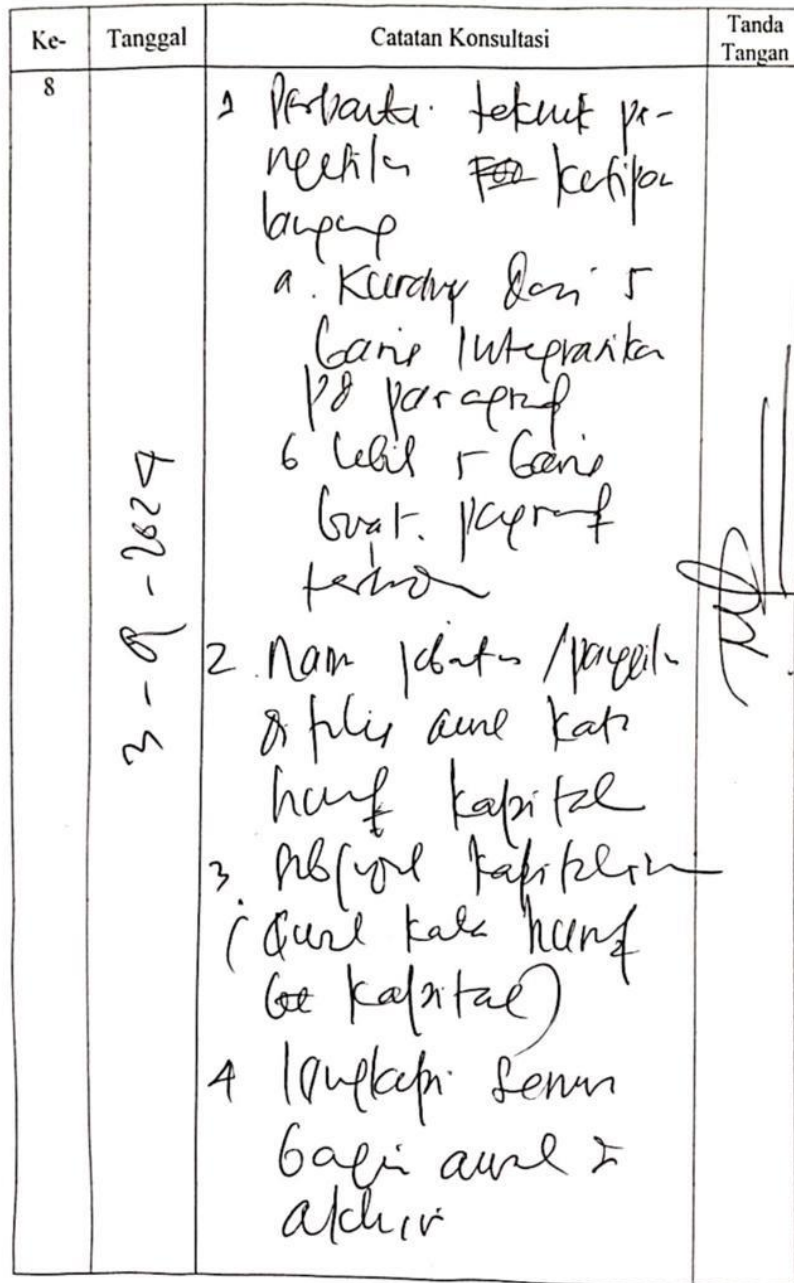 Ke-
Tanggal
Catatan Konsultasi
Tanda
Tangan
8
3-9-2024
1 Perbaiki teknik pe-
ngutipan kutipan
langsung
a. Kurang dari 5
baris integrasikan
pd paragraf
b lebih 5 baris
buat. paragraf
2. Nama jabatan / panggilan
ditulis awal kata
huruf kapital
3. kapital
(awal kata huruf
kapital)
4 lengkapi semua
bagian awal &
akhir